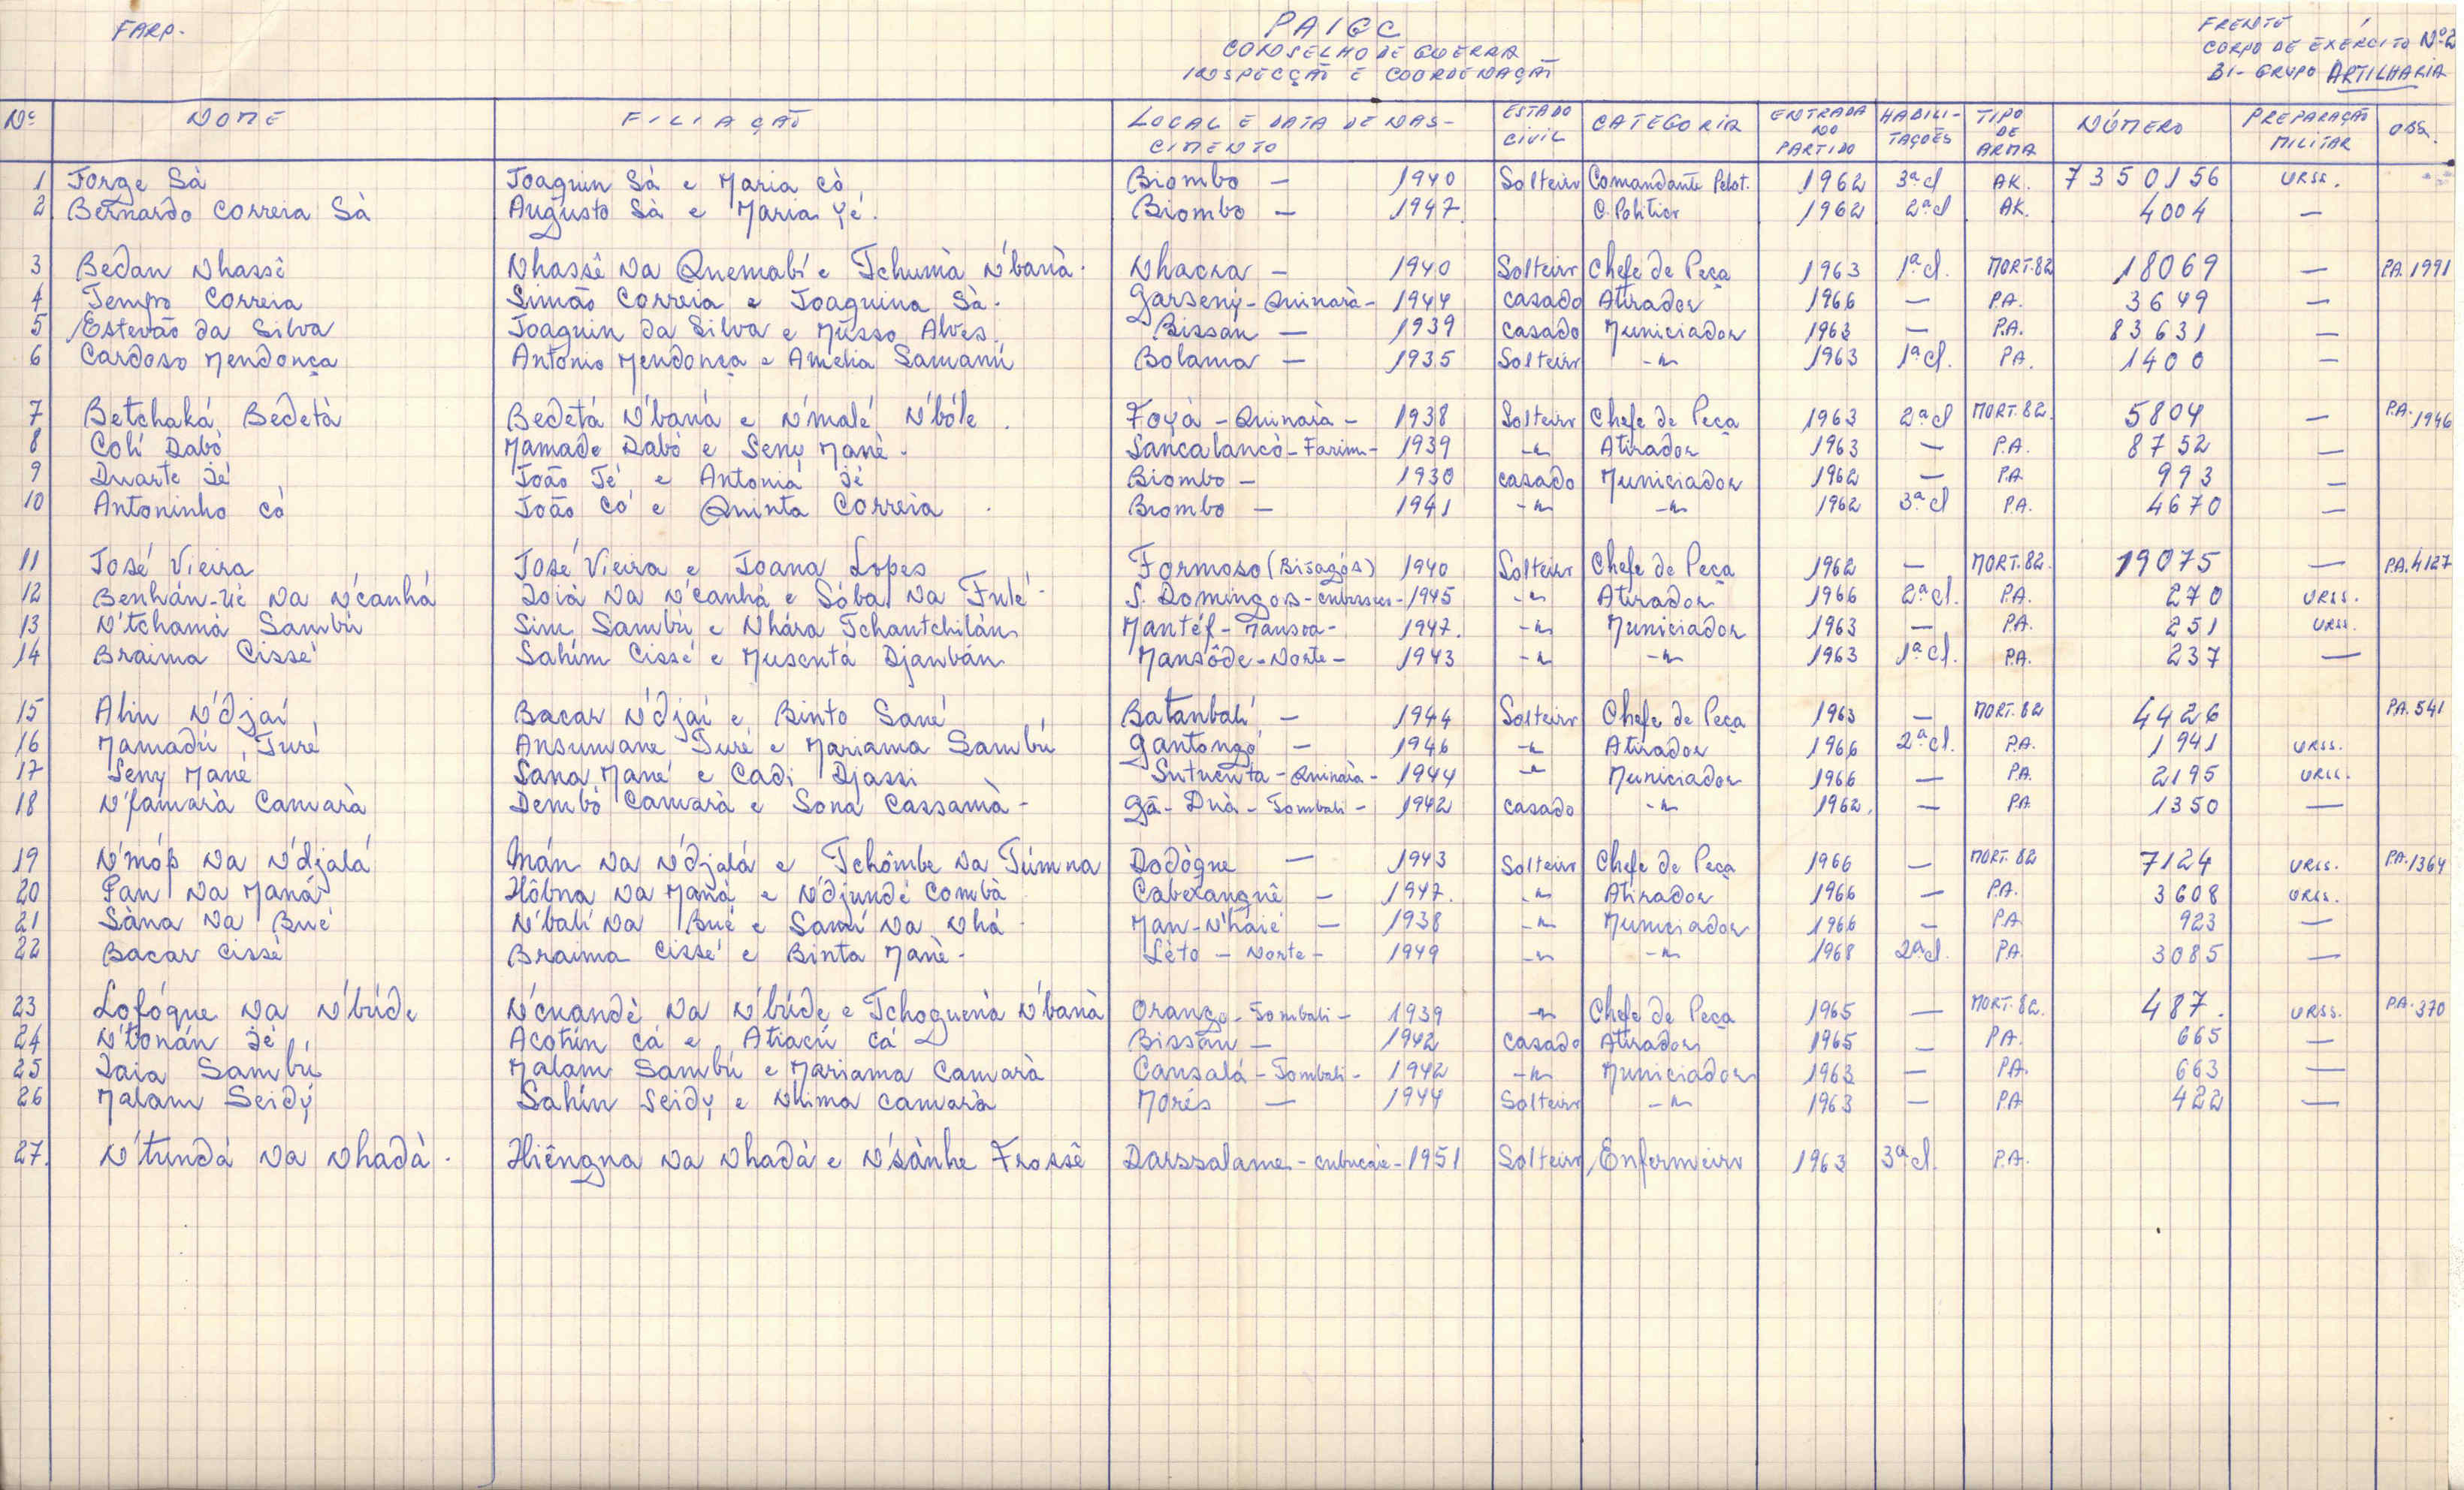 FARP.
PAIGC
CONSELHO DE GUERRA
INSPECÇÃO E COORDENAÇÃO
FRENTE
CORPO DE EXÉRCITO Nº 2
BI-GRUPO ARTILHARIA
Nº NOME FILIAÇÃO LOCAL E DATA DE NASCIMENTO ESTADO CIVIL CATEGORIA ENTRADA NO PARTIDO HABILITAÇÕES TIPO DE ARMA NÚMERO PREPARAÇÃO MILITAR OBS.
1 Jorge Sà Joaquin Sà e Maria Cò Biombo — 1940 Solteiro Comandante Pelot. 1962 3ª cl AK. 7350156 URSS.
2 Bernardo Correia Sà Augusto Sà e Maria Yé. Biombo — 1947. C. Politico 1962 2ª cl AK. 4004 —
3 Bedan Nhassê Nhassê Na Quemabí e Tchumà N'banà. Nhacra — 1940 Solteiro Chefe de Peça 1963 1ª cl. MORT.82 18069 — PA.1991
4 Tempo Correia Simão Correia e Joaquina Sà. Garseny-Quinarà- 1944 casado Atirador 1966 — P.A. 3649 —
5 Estevão da Silva Joaquin da Silva e Musso Alves. Bissau — 1939 casado Municiador 1963 — P.A. 83631 —
6 Cardoso Mendonça António Mendonça e Amélia Samanú Bolama — 1935 Solteiro -"- 1963 1ª cl. PA. 1400 —
7 Betchaká Bedetà Bedetá N'baná e N'malé N'bóle. Foyà - Quinarà - 1938 Solteiro Chefe de Peça 1963 2ª cl MORT.82. 5804 — PA.1946
8 Colí Dabó Mamade Dabó e Seny Manè. Sancalancò-Farim- 1939 -"- Atirador 1963 — P.A. 8752 —
9 Duarte Jé João Jé e Antonia Jé Biombo — 1930 casado Municiador 1962 — P.A 993 —
10 Antoninho Có João Có e Quinta Correia. Biombo — 1941 -"- -"- 1962 3ª cl P.A. 4670 —
11 José Vieira José Vieira e Joana Lopes Formoso (Bijagós) 1940 Solteiro Chefe de Peça 1962 — MORT.82. 19075 — PA.4127
12 Benhán-Ué Na N'canhá Doià Na N'canhá e Sóbal Na Fulé. S. Domingos- -1945 -"- Atirador 1966 2ª cl. P.A. 270 URSS.
13 N'tchamà Sambú Sim Sambú e Nhára Tchantchilán Mantéf-Mansoa- 1947. -"- Municiador 1963 — P.A. 251 URSS.
14 Braima Cissé Sahím Cissé e Musentá Djanbán Mansôde-Norte- 1943 -"- -"- 1963 1ª cl. P.A. 237 —
15 Aliu N'djaí Bacar N'djaí e Binto Sané Batanbalí — 1944 Solteiro Chefe de Peça 1963 — MORT.82 4426 PA.541
16 Mamadú Turé Ansumane Turé e Mariama Sambú Gantongó — 1946 -"- Atirador 1966 2ª cl. P.A. 1941 URSS.
17 Seny Mané Sana Mané e Cadi Djassi Sutuenta-Quinarà- 1944 -"- Municiador 1966 — PA. 2195 URSS.
18 N'famarà Camarà Dembó Camarà e Sona Cassamà - Gã-Duà-Tombali- 1942 casado -"- 1962. — PA 1350 —
19 N'móp Na N'djalá Mán Na N'djalá e Tchômbe Na Túmna Dodógne — 1943 Solteiro Chefe de Peça 1966 — MORT.82 7124 URSS. PA.1364
20 Pan Na Maná Hôbna Na Maná e N'djundé Combà Cabexanguê — 1947. -"- Atirador 1966 — P.A. 3608 URSS.
21 Sàna Na Bué N'balí Na Bué e Samí Na Nhá. Man-N'háié — 1938 -"- Municiador 1966 — PA 923 —
22 Bacar Cissé Braima Cissé e Binta Manè. Léto - Norte - 1949 -"- -"- 1968 2ª cl. P.A. 3085 —
23 Lofóque Na N'búde N'cuandè Na N'búde e Tchoguenà N'banà Orango-Tombali- 1939 -"- Chefe de Peça 1965 — MORT.82. 487. URSS. PA.370
24 N'tonán Jé Acotín Cá e Atiacú Cá Bissau — 1942 casado Atirador 1965 — PA. 665 —
25 Daia Sambú Malam Sambú e Mariama Camarà Cansalá-Tombali- 1942 -"- Municiador 1963 — PA. 663 —
26 Malam Seidy Sahín Seidy e Nhima Camarà Morés — 1944 Solteiro -"- 1963 — PA 422 —
27. N'tundá Na Nhadà. Hiêngna Na Nhadà e N'sànhe Frossê Darssalame-Cubucaré-1951 Solteiro Enfermeiro 1963 3ª cl. P.A.